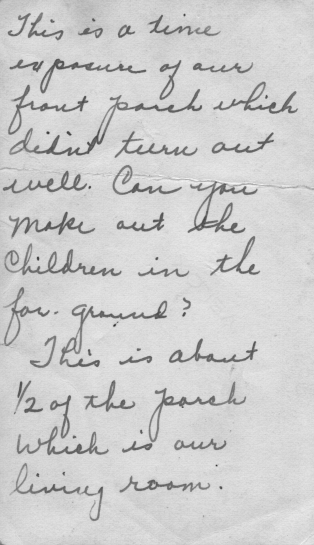 This is a time
exposure of our
front porch which
didn't turn out
well. Can you
make out the
Children in the
for-ground?
This is about
1/2 of the porch
which is our
living room.